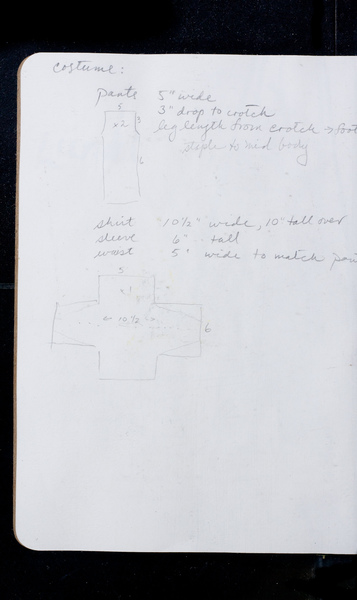 costume:
pants 5" wide
5
3" drop to crotch
x2 3
leg length from crotch → foot
staple to mid body
6
shirt 10 1/2" wide, 10" tall over
sleeve 6" tall
waist 5" wide to match pan
5
x1
10 1/2
6